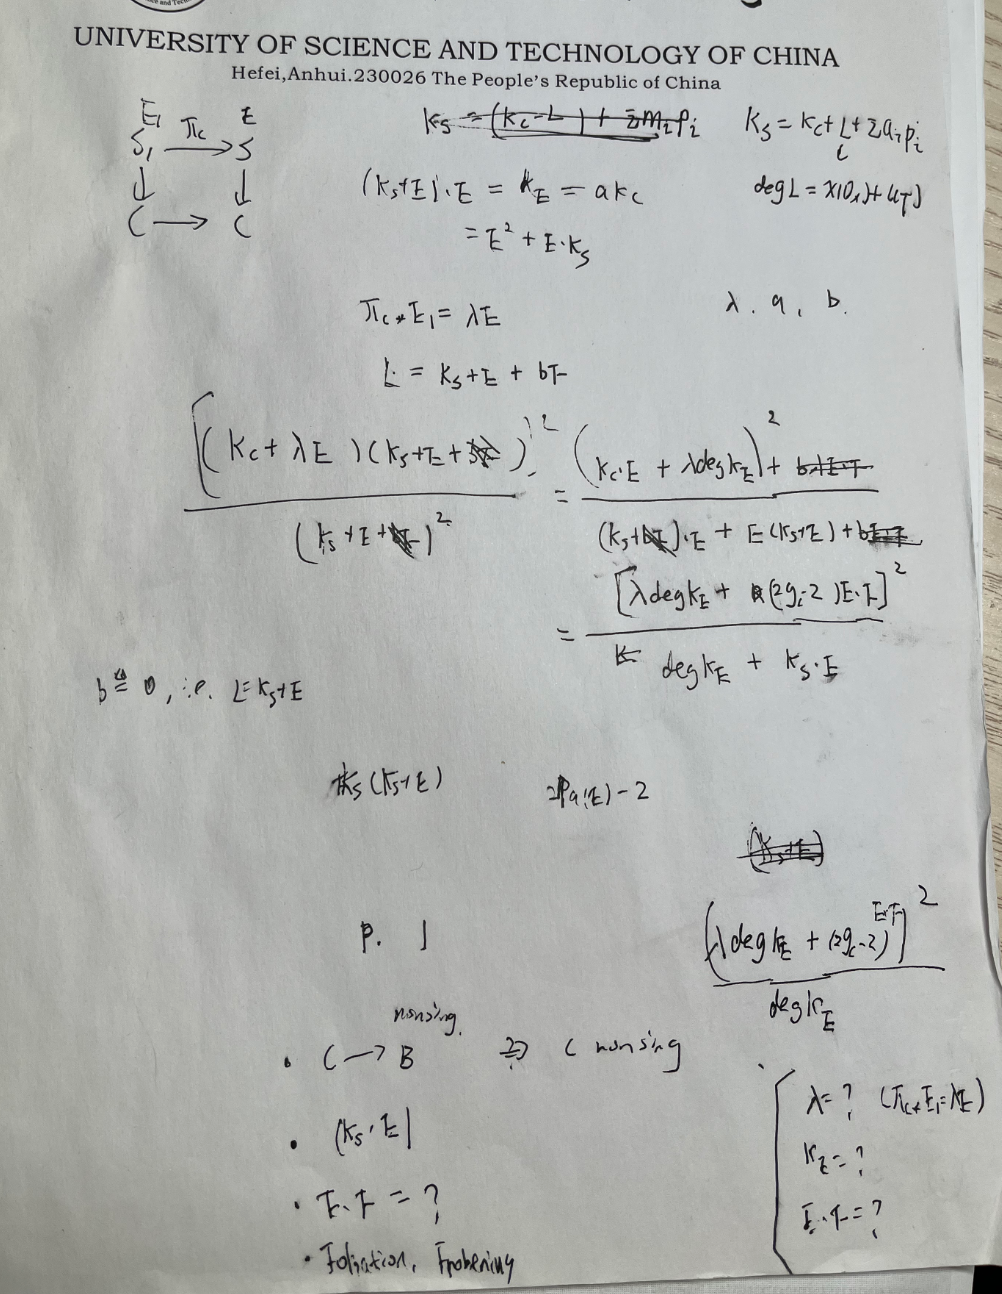 UNIVERSITY OF SCIENCE AND TECHNOLOGY OF CHINA
Hefei,Anhui.230026 The People's Republic of China
E₁ E
S₁ → S
π_C
C → C
K_S = (K_C - L) + Σm_i p_i
K_S = K_C + L + Σa_i p_i
(K_S+E)·E = K_E = aK_C
deg L = χ(O_s)+ μT)
= E² + E·K_S
π_C* E₁ = λE
λ, a, b.
L = K_S + E + bF
[(K_C + λE)(K_S + E + )]² / (K_S + E + )² = (K_C·E + λ deg K_E)² + bλE·F / (K_S + )·E + E(K_S+E) + b
= [λ deg K_E + (2g_C-2)E·F]² / deg K_E + K_S·E
b ≜ 0, i.e. L = K_S+E
K_S (K_S+E)
2Pa(E) - 2
(K_S+E)
(λ deg K_E + (2g_C-2) E·F)² / deg K_E
P. 1
nonsing.
• C → B ⇒ C nonsing
?
• (K_S·E)
• E·F = ?
• Foliation, Frobenius
λ = ? (π_C* E₁ = λE)
K_E = ?
E·F = ?